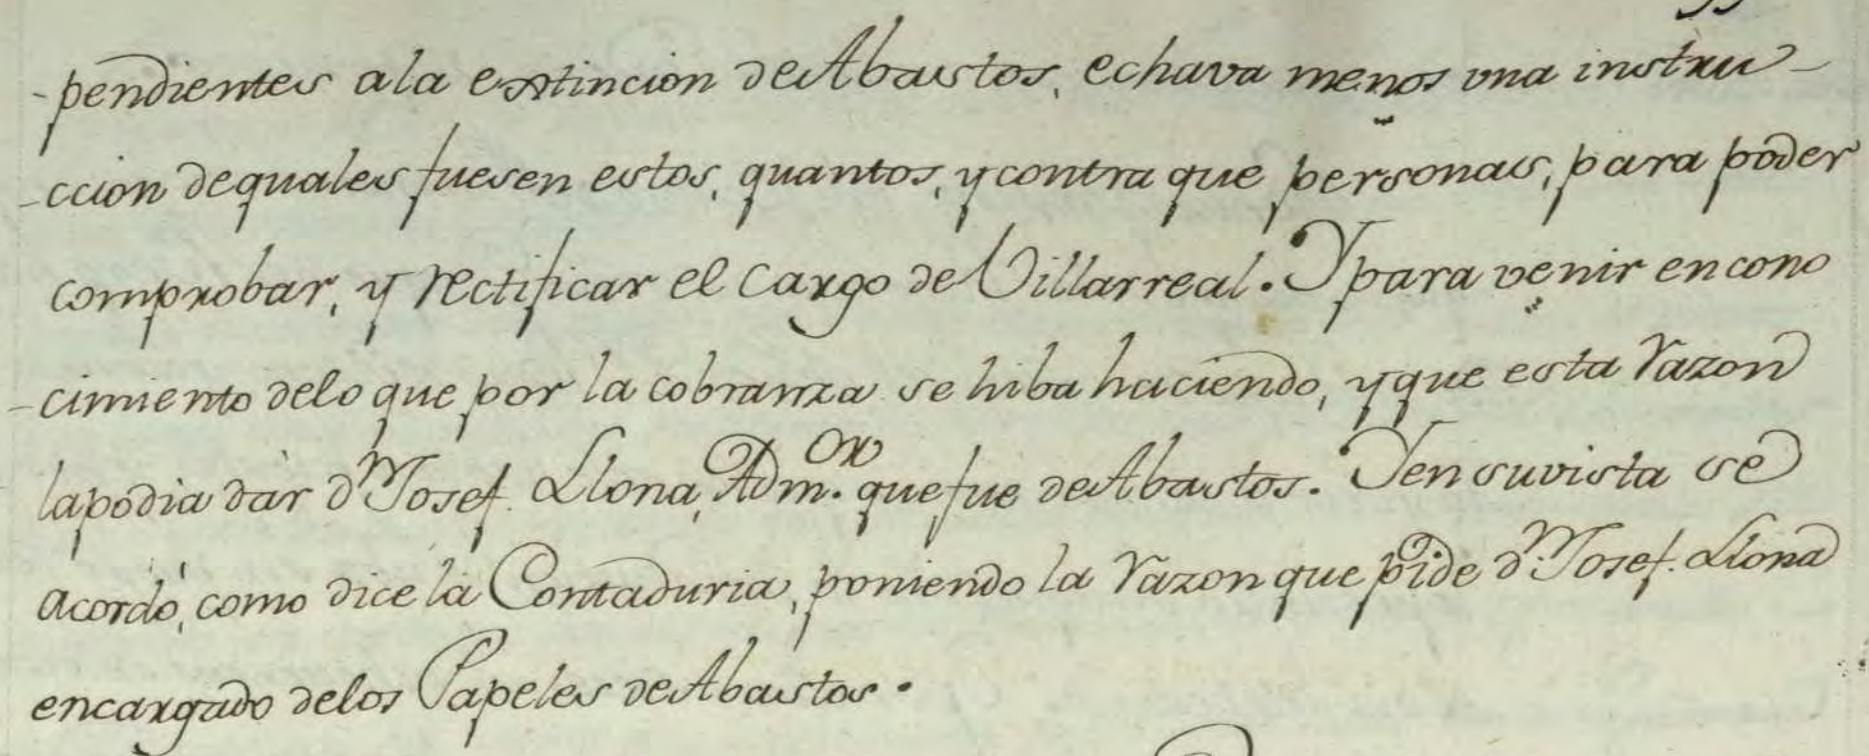 -pendientes ala extincion de Abastos, echava menos una instru-
-ccion de quales fuesen estos, quantos, y contra que personas, para poder
comprobar, y rectificar el Cargo de Villarreal. Y para venir en cono
-cimiento delo que por la cobranza se hiba haciendo, y que esta razon
la podia dàr dn. Josef. Llona, Adm.or que fue de Abastos. Y en su vista se
acordó, como dice la Contaduria, poniendo la razon que pide dn. Josef. Llona
encargado delos Papeles de Abastos.